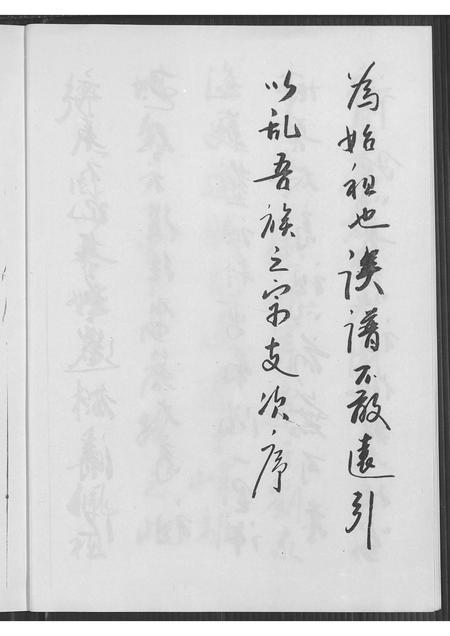 為始祖也謨譜不敢遠引
以乱吾族之宗支次序